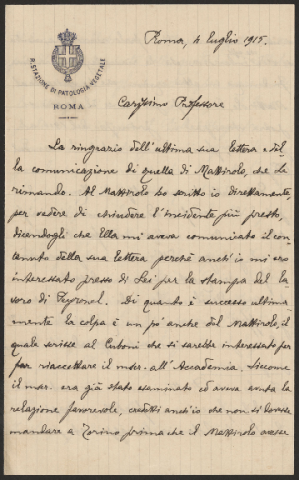 R. STAZIONE DI PATOLOGIA VEGETALE
ROMA
Roma, 4 luglio 1915.
Carissimo Professore
La ringrazio dell'ultima sua lettera e del
la comunicazione di quella di Mattirolo, che Le
rimando. Al Mattirolo ho scritto io direttamente,
per vedere di chiudere l'incidente più presto,
dicendogli che Ella mi aveva comunicato il con
tenuto della sua lettera perché anch'io mi ero
interessato presso di Lei per la stampa del la
voro di Peyronel. Di quanto è successo ultima
mente la colpa è un po' anche del Mattirolo, il
quale scrisse al Cuboni che si sarebbe interessato per
far riaccettare il mscr. all'Accademia. Siccome
il mscr. era già stato esaminato ed aveva avuta la
relazione favorevole, credetti anch'io che non si dovesse
mandare a Torino prima che il Mattirolo avesse